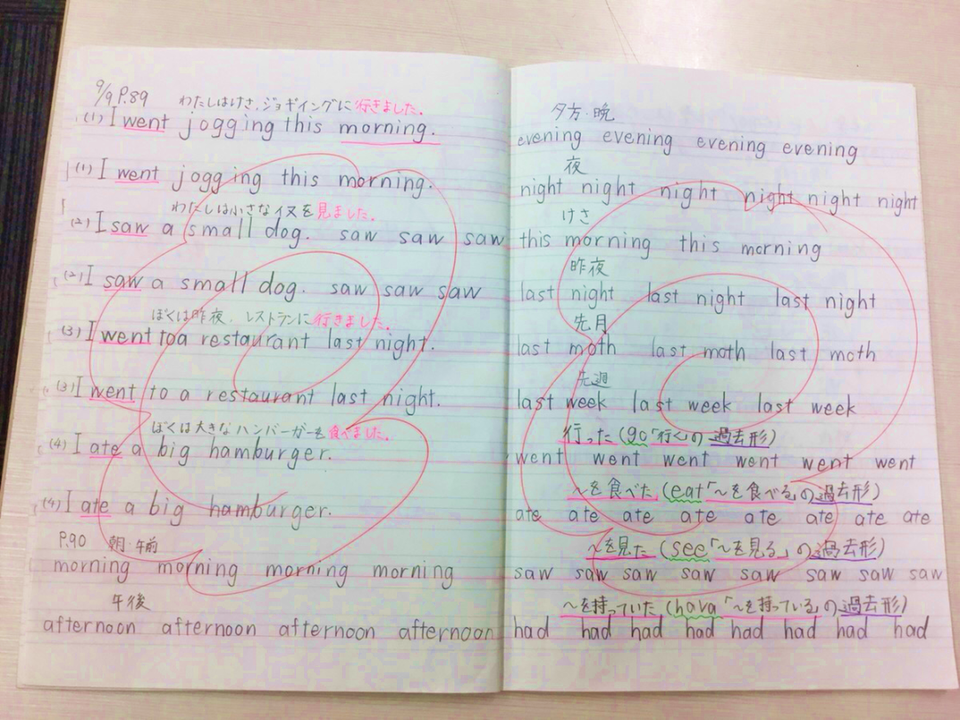 9/9 P.89
わたしはけさ、ジョギイングに行きました。
(1) I went jogging this morning.
(1) I went jogging this morning.
わたしは小さなイヌを見ました。
(2) I saw a small dog. saw saw saw
(2) I saw a small dog. saw saw saw
ぼくは昨夜、レストランに行きました。
(3) I went to a restaurant last night.
(3) I went to a restaurant last night.
ぼくは大きなハンバーガーを食べました。
(4) I ate a big hamburger.
(4) I ate a big hamburger.
P.90 朝・午前
morning morning morning morning
午後
afternoon afternoon afternoon afternoon
夕方・晩
evening evening evening evening
夜
night night night night night night
けさ
this morning this morning
昨夜
last night last night last night
先月
last moth last moth last moth
先週
last week last week last week
行った(go「行く」の過去形)
went went went went went went
〜を食べた(eat「〜を食べる」の過去形)
ate ate ate ate ate ate ate ate
〜を見た(see「〜を見る」の過去形)
saw saw saw saw saw saw saw saw
〜を持っていた(hava「〜を持っている」の過去形)
had had had had had had had had